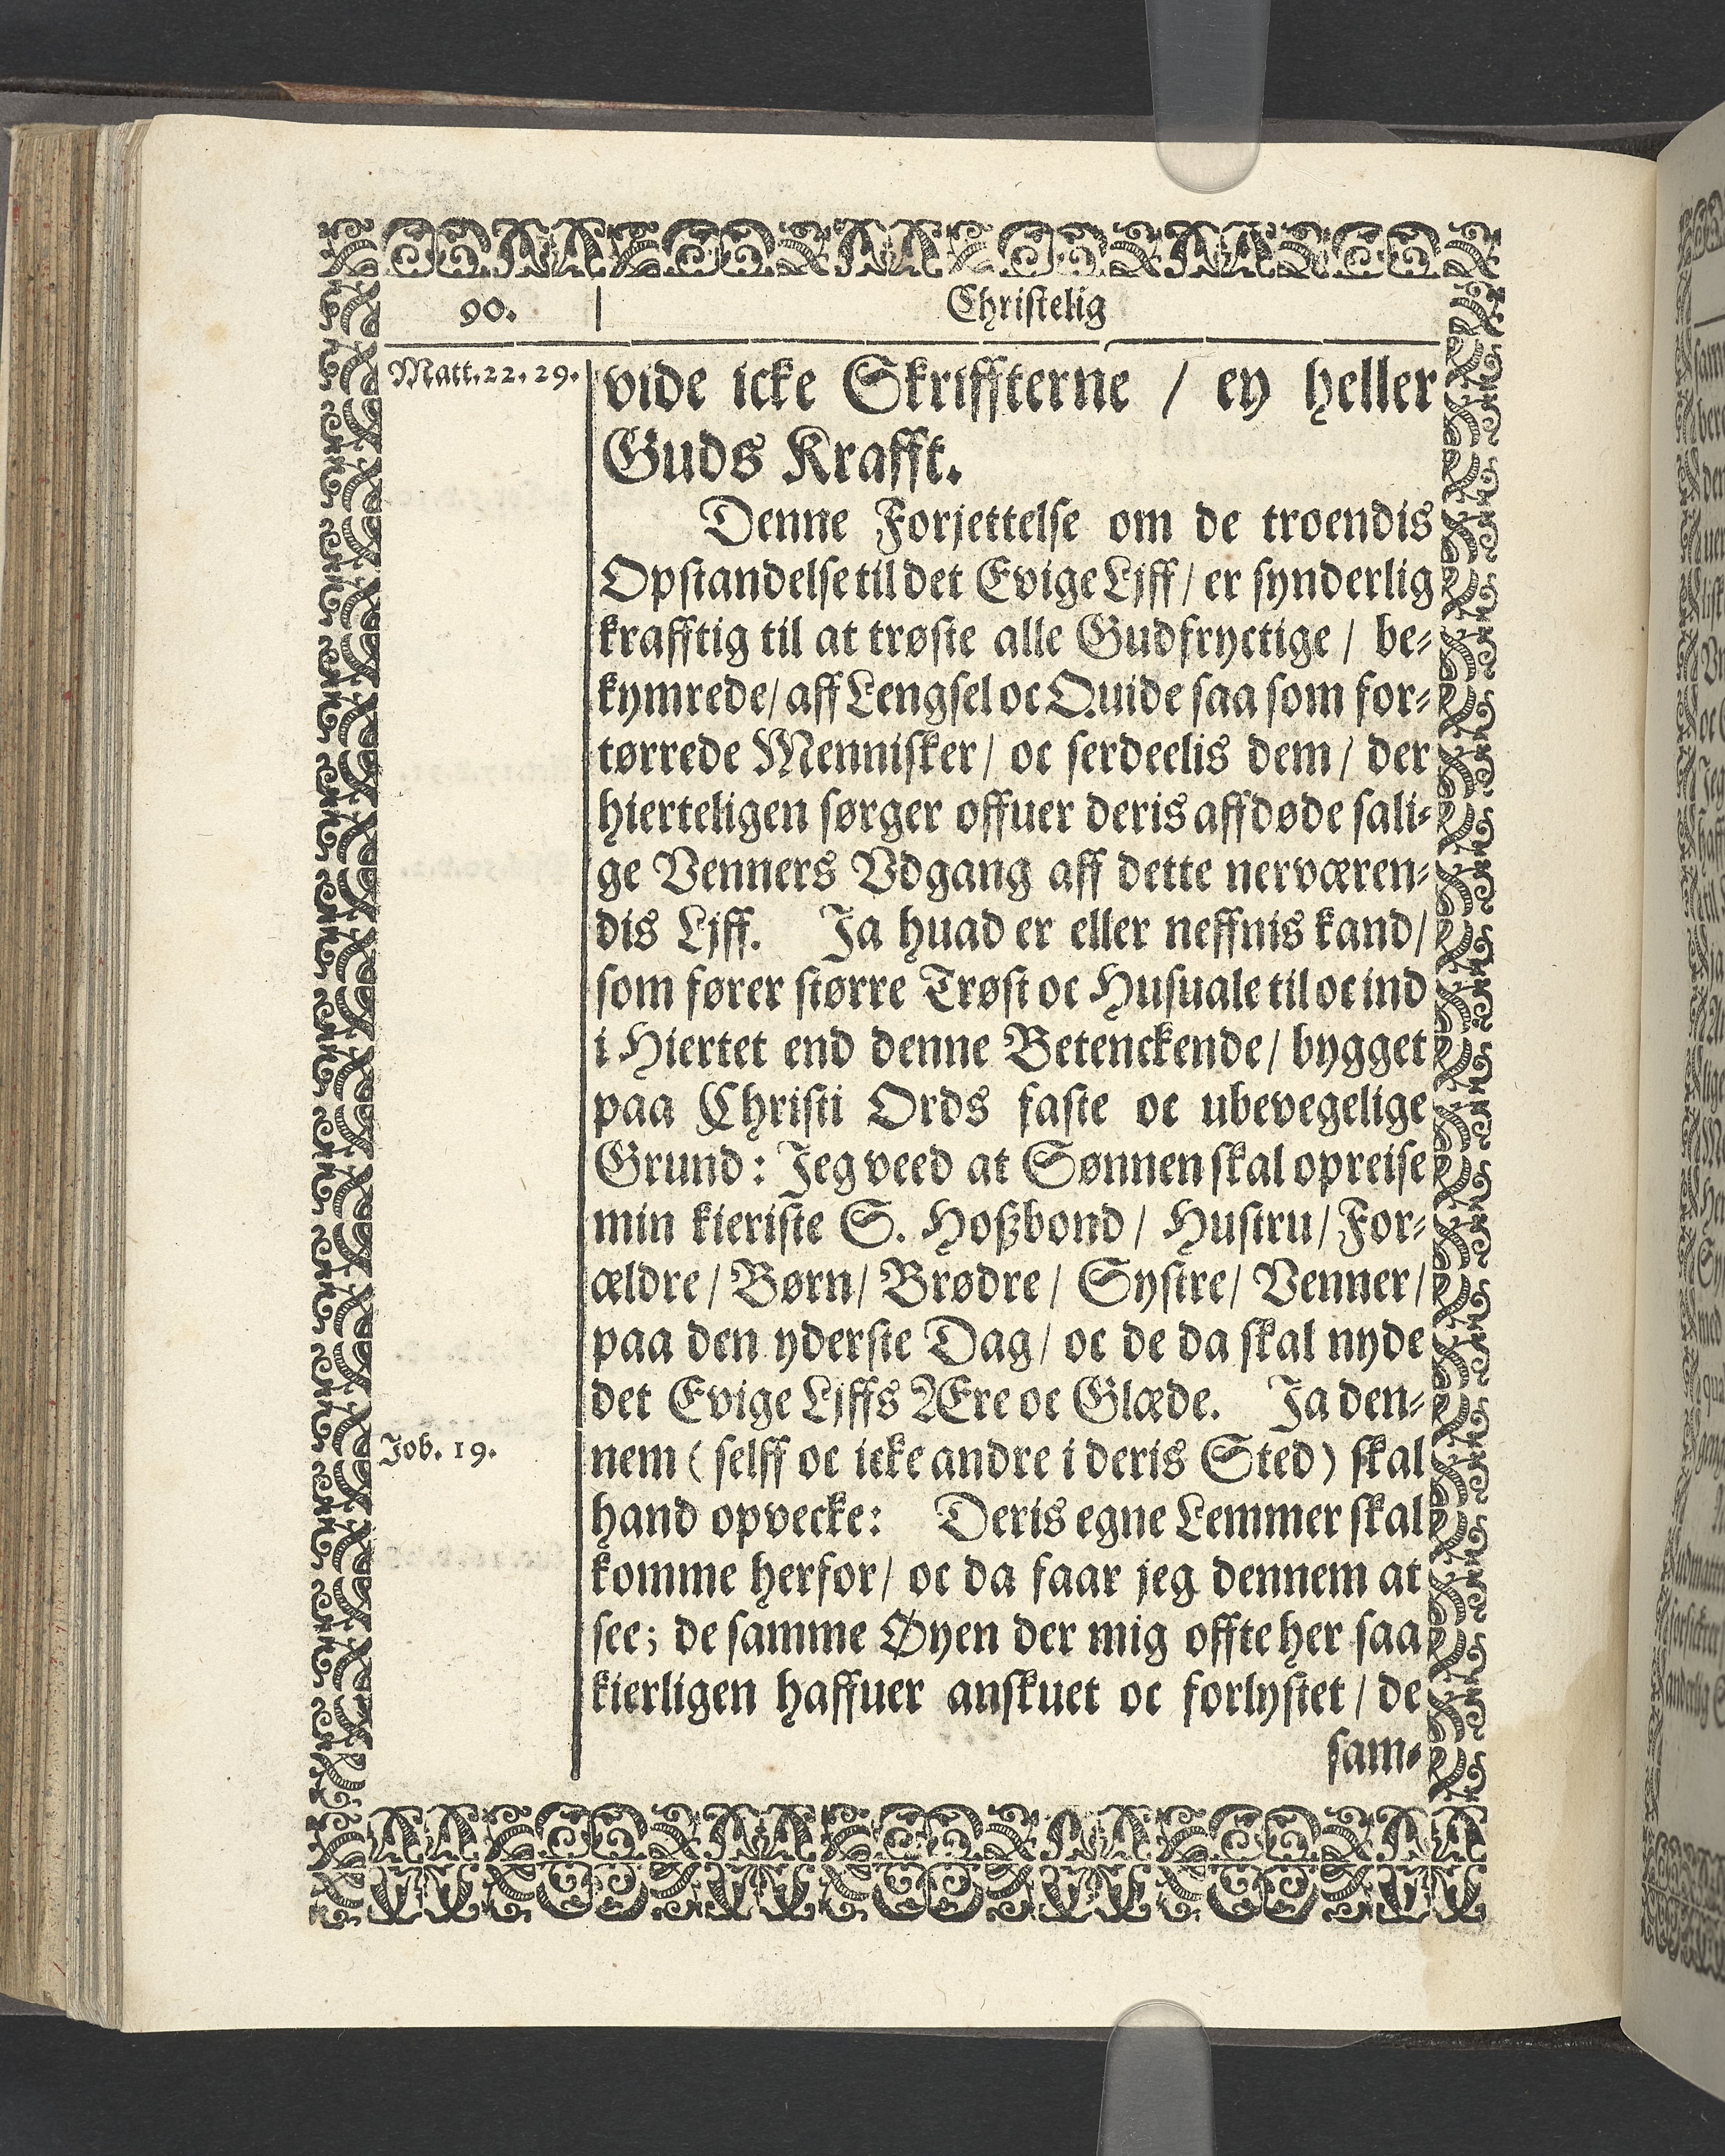 90.
Christelig
Matt. 22. 29.
vide icke Skriffterne / ey heller
Guds Krafft.
Denne Forjettelse om de troendis
Opstandelse til det Evige Ljff / er synderlig
krafftig til at trøste alle Gudfryctige / be-
kymrede / aff Lengsel oc Quide saa som for-
tørrede Mennisker / oc serdeelis dem / der
hierteligen sørger offuer deris affdøde sali-
ge Venners Vdgang aff dette nerværen-
dis Ljff. Ja huad er eller neffnis kand /
som fører større Trøst oc Husuale til oc ind
i Hiertet end denne Betenckende / bygget
paa Christi Ords faste oc ubevegelige
Grund: Jeg veed at Sønnen skal opreise
min kieriste S. Hoßbond / Hustru / For-
ældre / Børn / Brødre / Systre / Venner /
paa den yderste Dag / oc de da skal nyde
det Evige Ljffs Ære oc Glæde. Ja den-
Job. 19.
nem ( selff oc icke andre i deris Sted ) skal
hand opvecke: Deris egne Lemmer skal
komme herfor / oc da faar jeg dennem at
see; de samme Øyen der mig offte her saa
kierligen haffuer anskuet oc forlystet / de
sam-